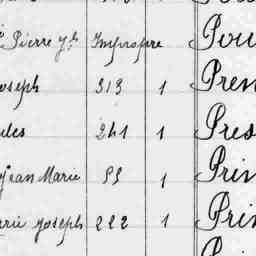 Pierre Yh Impropre Pou
Joseph 313 1 Pren
ules 241 1 Pres
Jean Marie 55 1 Prin
arie Joseph 222 1 Prin